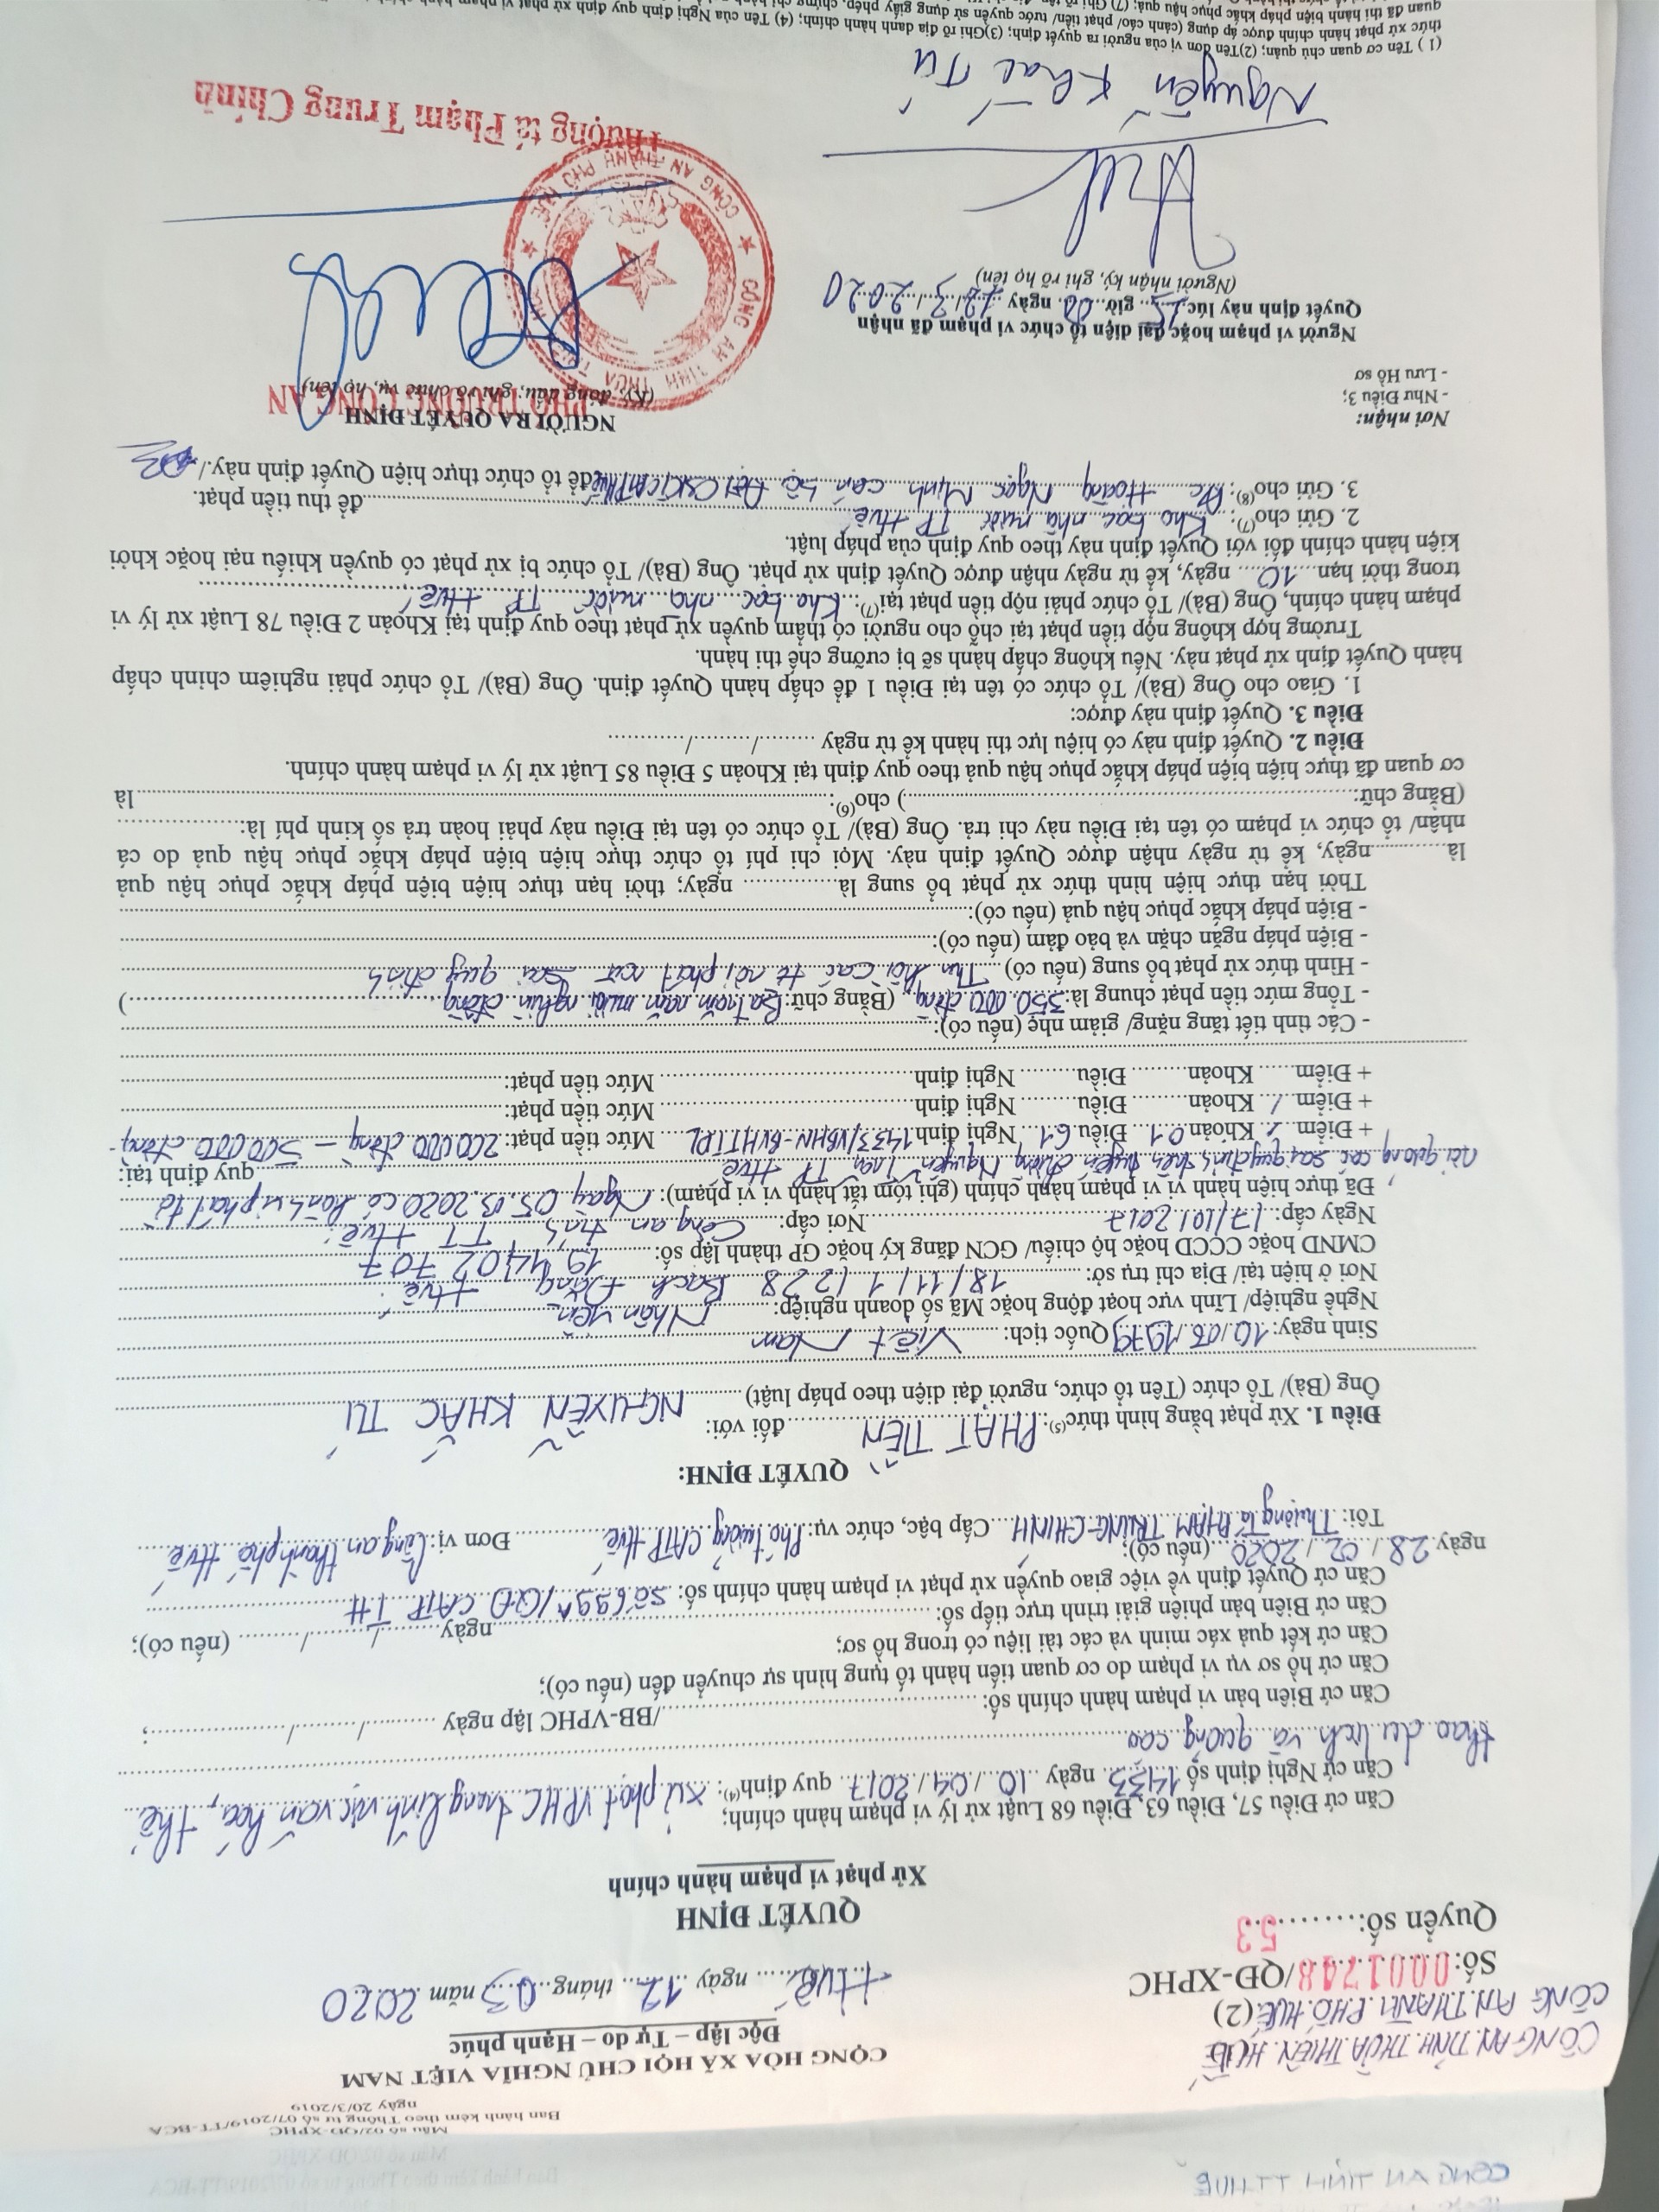 CÔNG AN TỈNH TTHUẾ
Mẫu số 02/QĐ-XPHC
Ban hành kèm theo Thông tư số 07/2019/TT-BCA
ngày 20/3/2019
CÔNG AN TỈNH THỪA THIÊN HUẾ
CÔNG AN THÀNH PHỐ HUẾ (2)
Số: 0001748/QĐ-XPHC
Quyển số: 53
CỘNG HÒA XÃ HỘI CHỦ NGHĨA VIỆT NAM
Độc lập – Tự do – Hạnh phúc
Huế, ngày 12 tháng 03 năm 2020
QUYẾT ĐỊNH
Xử phạt vi phạm hành chính
Căn cứ Điều 57, Điều 63, Điều 68 Luật xử lý vi phạm hành chính;
Căn cứ Nghị định số 1433 ngày 10/04/2017 quy định(4): xử phạt VPHC trong lĩnh vực văn hóa, thể
thao du lịch và quảng cáo
Căn cứ Biên bản vi phạm hành chính số: ............/BB-VPHC lập ngày ......../......../........;
Căn cứ hồ sơ vụ vi phạm do cơ quan tiến hành tố tụng hình sự chuyển đến (nếu có);
Căn cứ kết quả xác minh và các tài liệu có trong hồ sơ;
Căn cứ Biên bản phiên giải trình trực tiếp số: ............ ngày ......../......../........ (nếu có);
Căn cứ Quyết định về việc giao quyền xử phạt vi phạm hành chính số: số 699A/QĐ CATP TH
ngày 28/02/2020 (nếu có);
Tôi: Thượng Tá PHẠM TRUNG CHINH Cấp bậc, chức vụ: Phó trưởng CATP Huế Đơn vị: Công an thành phố Huế
QUYẾT ĐỊNH:
Điều 1. Xử phạt bằng hình thức(5): PHẠT TIỀN đối với:
Ông (Bà)/ Tổ chức (Tên tổ chức, người đại diện theo pháp luật) NGUYỄN KHẮC TÚ
Sinh ngày: 10/03/1979 Quốc tịch: Việt Nam
Nghề nghiệp/ Lĩnh vực hoạt động hoặc Mã số doanh nghiệp: Nhân viên
Nơi ở hiện tại/ Địa chỉ trụ sở: 18/11/1/228 Bạch Đằng Huế
CMND hoặc CCCD hoặc hộ chiếu/ GCN đăng ký hoặc GP thành lập số: 194402707
Ngày cấp: 17/10/2017 Nơi cấp: Công an tỉnh TT Huế
Đã thực hiện hành vi vi phạm hành chính (ghi tóm tắt hành vi vi phạm): Ngày 05.03.2020 có hành vi phát tờ
rơi quảng cáo sai quy định trên tuyến đường Nguyễn Trãi, TP Huế quy định tại:
+ Điểm / Khoản 01 Điều 61 Nghị định 1433/VBHN-BVHTTDL Mức tiền phạt: 200.000 đồng – 500.000 đồng
+ Điểm / Khoản ........ Điều ........ Nghị định ........ Mức tiền phạt: ........
+ Điểm ...... Khoản ........ Điều ........ Nghị định ........ Mức tiền phạt: ........
- Các tình tiết tăng nặng/ giảm nhẹ (nếu có):
- Tổng mức tiền phạt chung là: 350.000 đồng (Bằng chữ: Ba trăm năm mươi nghìn đồng)
- Hình thức xử phạt bổ sung (nếu có) Thu hồi các tờ rơi phát sai quy định
- Biện pháp ngăn chặn và bảo đảm (nếu có):
- Biện pháp khắc phục hậu quả (nếu có):
Thời hạn thực hiện hình thức xử phạt bổ sung là ........ ngày; thời hạn thực hiện biện pháp khắc phục hậu quả
là ........ ngày, kể từ ngày nhận được Quyết định này. Mọi chi phí tổ chức thực hiện biện pháp khắc phục hậu quả do cá
nhân/ tổ chức vi phạm có tên tại Điều này chi trả. Ông (Bà)/ Tổ chức có tên tại Điều này phải hoàn trả số kinh phí là: ........
(Bằng chữ: ........) cho(6): ........ là
cơ quan đã thực hiện biện pháp khắc phục hậu quả theo quy định tại Khoản 5 Điều 85 Luật xử lý vi phạm hành chính.
Điều 2. Quyết định này có hiệu lực thi hành kể từ ngày ......../......../........
Điều 3. Quyết định này được:
1. Giao cho Ông (Bà)/ Tổ chức có tên tại Điều 1 để chấp hành Quyết định. Ông (Bà)/ Tổ chức phải nghiêm chỉnh chấp
hành Quyết định xử phạt này. Nếu không chấp hành sẽ bị cưỡng chế thi hành.
Trường hợp không nộp tiền phạt tại chỗ cho người có thẩm quyền xử phạt theo quy định tại Khoản 2 Điều 78 Luật xử lý vi
phạm hành chính, Ông (Bà)/ Tổ chức phải nộp tiền phạt tại(7): Kho bạc nhà nước TP Huế
trong thời hạn 10 ngày, kể từ ngày nhận được Quyết định xử phạt. Ông (Bà)/ Tổ chức bị xử phạt có quyền khiếu nại hoặc khởi
kiện hành chính đối với Quyết định này theo quy định của pháp luật.
2. Gửi cho(7): Kho bạc nhà nước TP Huế để thu tiền phạt.
3. Gửi cho(8): Đ/c Hoàng Ngọc Minh cán bộ Đội CSKT CATP Huế để tổ chức thực hiện Quyết định này./.
Nơi nhận:
- Như Điều 3;
- Lưu Hồ sơ
NGƯỜI RA QUYẾT ĐỊNH
(Ký, đóng dấu; ghi rõ chức vụ, họ tên)
PHÓ TRƯỞNG CÔNG AN
Người vi phạm hoặc đại diện tổ chức vi phạm đã nhận
Quyết định này lúc 15 giờ 00 ngày 12/3/2020
(Người nhận ký, ghi rõ họ tên)
CÔNG AN TỈNH THỪA THIÊN HUẾ
CÔNG AN THÀNH PHỐ HUẾ
Nguyễn Khắc Tú
Thượng tá Phạm Trung Chính
(1) Tên cơ quan chủ quản; (2)Tên đơn vị của người ra quyết định; (3)Ghi rõ địa danh hành chính; (4) Tên của Nghị định quy định xử phạt vi phạm hành chính
thức xử phạt hành chính được áp dụng (cảnh cáo/ phạt tiền/ tước quyền sử dụng giấy phép, chứng chỉ hành
quan đã thi hành biện pháp khắc phục hậu quả; (7) Ghi rõ tên